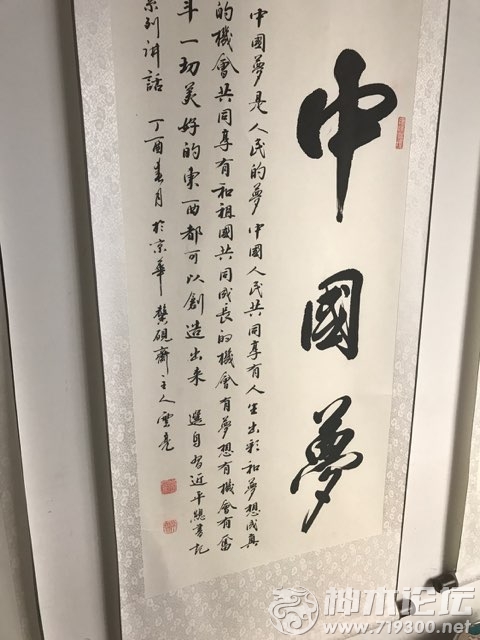 中國夢
中國夢是人民的夢中國人民共同享有人生出彩和夢想成真
的機會共同享有和祖國共同成長的機會有夢想有機會有奮
斗一切美好的東西都可以創造出来 選自習近平總書記
系列讲話 丁酉春月於京華 龑硯齋主人雲亮
神木论坛
www.719300.net